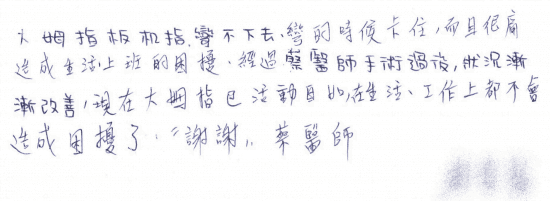 大姆指板机指,彎不下去,彎的時候卡住,而且很痛
造成生活上班的困擾,經過蔡醫師手術過後,狀況漸
漸改善,現在大姆指已活動自如,在生活、工作上都不會
造成困擾了,〝謝謝〞蔡醫師